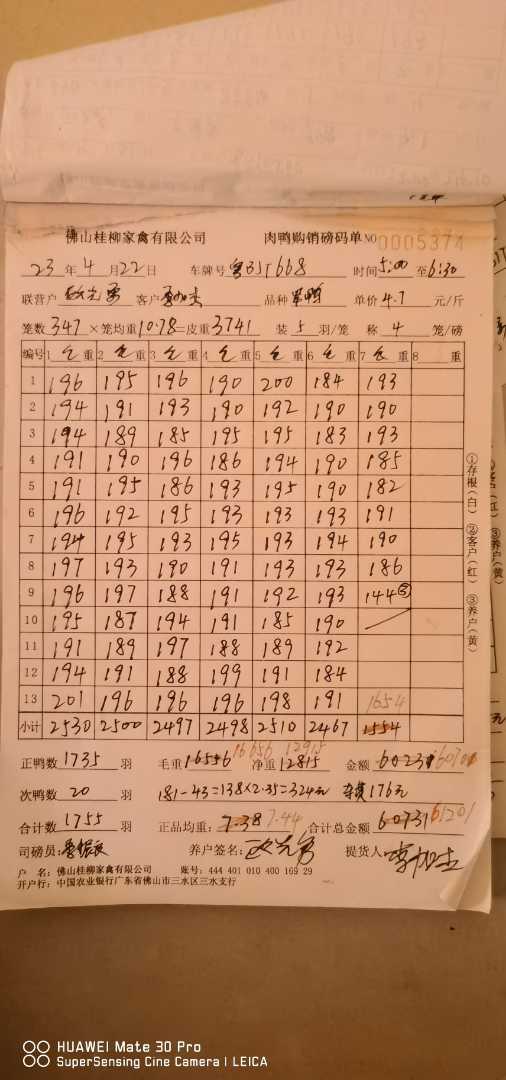 佛山桂柳家禽有限公司 肉鸭购销磅码单 NO 0005374
23 年 4 月 22 日 车牌号 粤 668 时间 5:00 至 6:30
联营户 客户 品种 单价 4.7 元/斤
笼数 347 ×笼均重 10.78 =皮重 3741 装 5 羽/笼 称 4 笼/磅
编号 1 毛 重 2 毛 重 3 毛 重 4 毛 重 5 毛 重 6 毛 重 7 毛 重 8 重
1 196 195 196 190 200 184 193
2 194 191 193 190 192 190 190
3 194 189 185 195 195 183 193
4 191 190 196 186 194 190 185
5 191 195 186 193 195 190 182
6 196 192 195 193 193 193 191
7 194 195 193 195 193 194 190
8 197 193 190 191 193 193 186
9 196 197 188 191 192 193 144 ③
10 195 187 194 191 185 190
11 191 189 197 188 189 192
12 194 191 188 199 191 184
13 201 196 196 196 198 191 1654
小计 2530 2500 2497 2498 2510 2467 1554
正鸭数 1735 羽 毛重 16556 16656 净重 12815 12915 金额 60231 60701
次鸭数 20 羽 181-43=138×2.35=324元 杂费176元
合计数 1755 羽 正品均重: 7.38 7.44 合计总金额 60731 61201
司磅员: 养户签名: 提货人
户 名: 佛山桂柳家禽有限公司 账号: 444 401 010 400 169 29
开户行: 中国农业银行广东省佛山市三水区三水支行
①存根(白) ②客户(红) ③养户(黄)
HUAWEI Mate 30 Pro
SuperSensing Cine Camera | LEICA